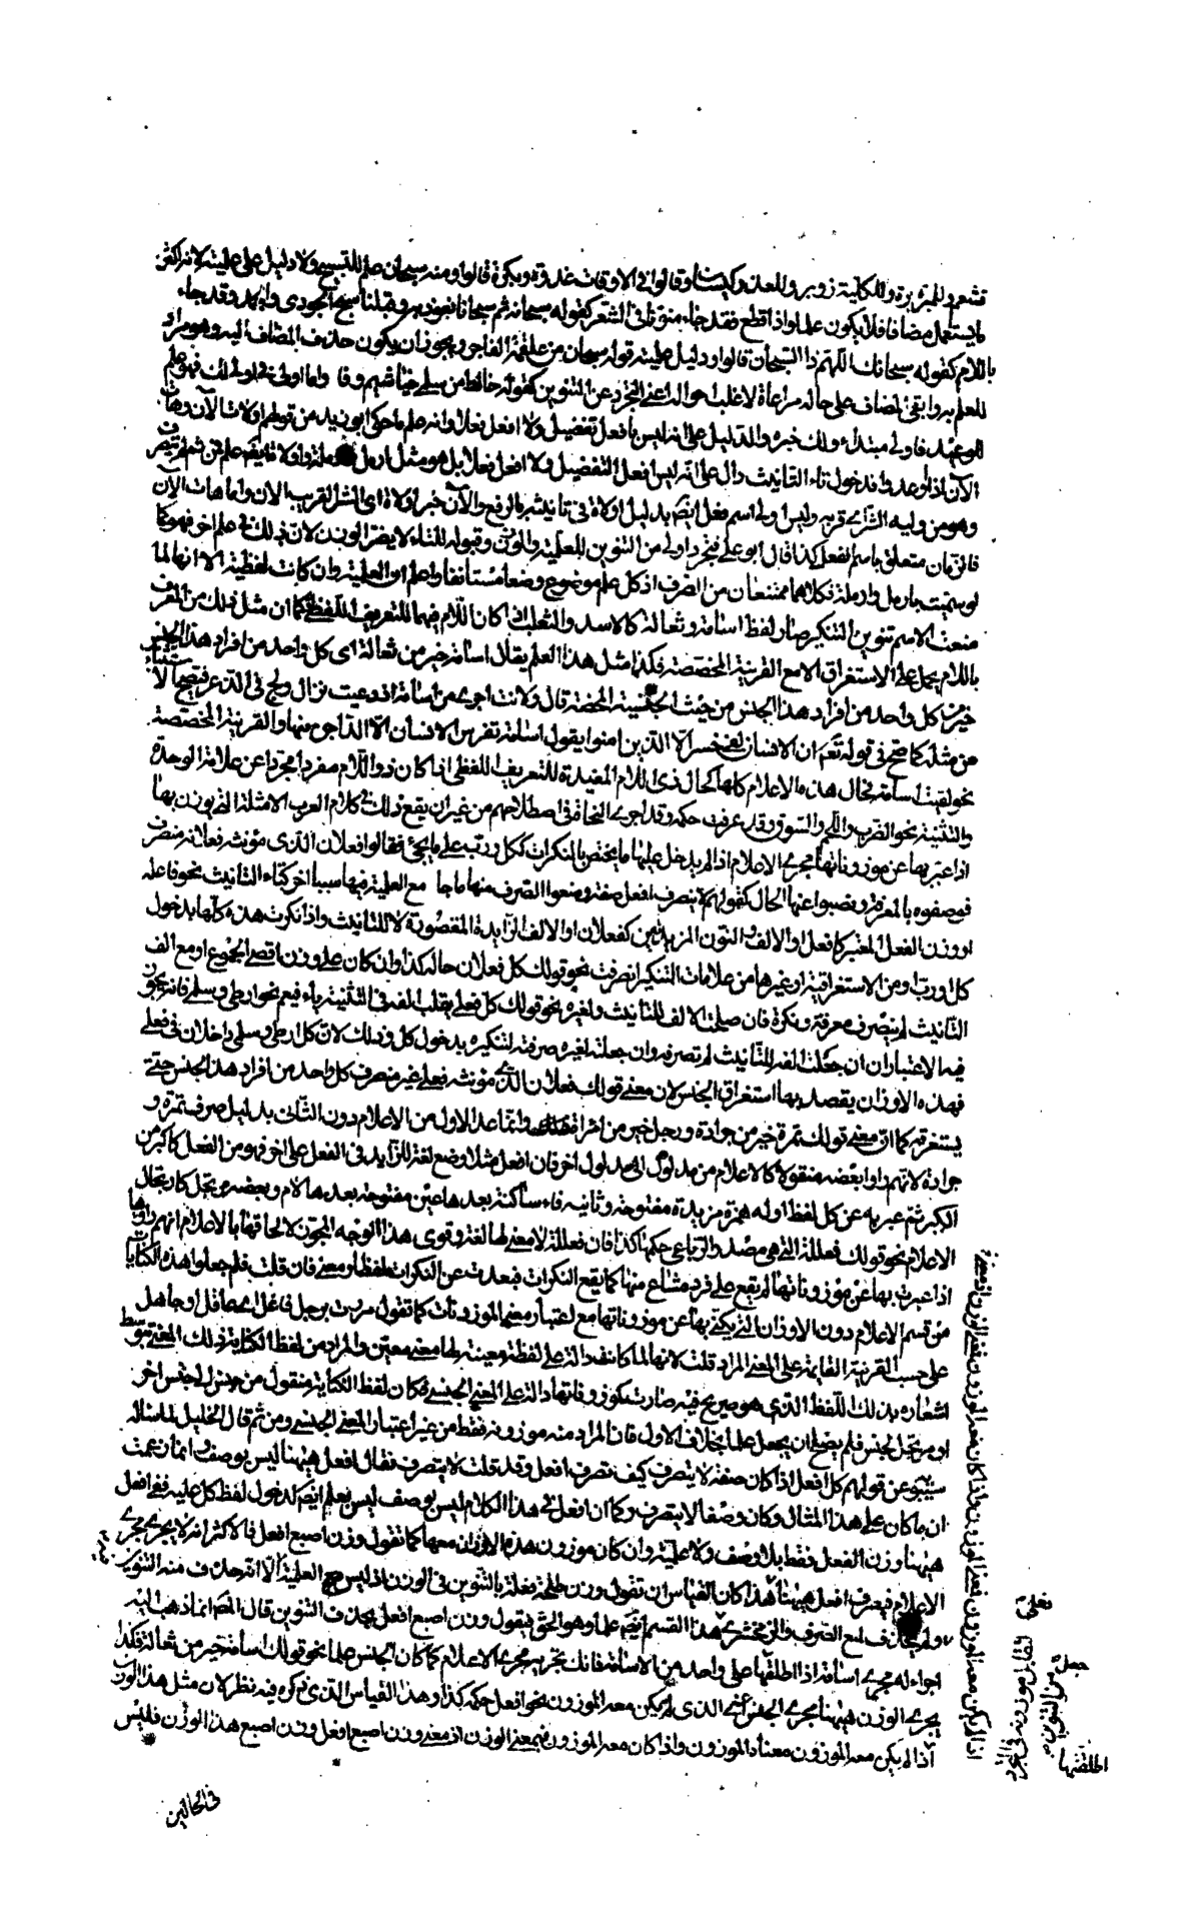 تشعر وللمبرة برة وللكلية زوبر وللغدر كيسان وقالوا في الاوقات غدوة وبكرة قالوا ومنه سبحان علم للتسبيح ولا دليل على علميته لانه اكثر
ما يستعمل مضافا فلا يكون علما واذا قطع فقد جاء منونا في الشعر كقوله سبحانه ثم سبحانا نعوذ به وقبلنا سبح الجودي والجمد وقد جاء
باللام كقوله سبحانك اللهم ذا السبحان قالوا ودليل علميته قوله سبحان من علقمة الفاخر ويجوز ان يكون حذف المضاف اليه وهو مراد
للعلم به وابقى المضاف على حاله مراعاة لاغلب احواله اعني التجرد عن التنوين كقوله خالط من سلمى خياشيم وفا واما اولى في اولى لك فهو علم
للوعيد فاولى مبتداء ولك خبره والدليل على انه ليس بافعل تفضيل ولا افعل فعلاء وانه علم ما حكى ابو زيد من قولهم اولاة الآن وهات
الآن اذا اوعدوا فدخول تاء التانيث دال على انه ليس افعل التفضيل ولا افعل فعلاء بل هو مثل ارمل وارملة واولاة ايضا علم فمن ثم لم ينصرف
وهو من وليه الشر اى قربه وليس اولى اسم فعل ايضا بدليل اولاة في تانيثه بالرفع والآن خبر اولاة اى الشر القريب الان واما هات الآن
فالزمان متعلق باسم الفعل كذا قال ابو على فتجرد اولى من التنوين للعلمية والوزن وقبوله للتاء لا يضر الوزن لان ذلك في علم اخر فهو كما
لو سميت بارمل وارملة فكلاهما ممتنعان من الصرف اذ كل علم موضوع وضعا مستانفا واعلم ان العلمية وان كانت لفظية الا انها لما
منعت الاسم تنوين التنكير صار لفظ اسامة وثعالة كالاسد والثعلب في كان اللام فيهما للتعريف اللفظي فكما ان مثل ذلك من المعرف
باللام يحمل على الاستغراق الا مع القرينة المخصصة فكذا مثل هذا العلم يقال اسامة خير من ثعالة اى كل واحد من افراد هذا الجنس
خير من كل واحد من افراد هذا الجنس من حيث الجنسية المحضة قال ولانت اجرى من اسامة اذ دعيت نزال ولج في الذعر فيصح الاستثناء
من مثله كما صح في قوله تعم ان الانسان لفي خسر الا الذين امنوا يقول اسامة تفرس الانسان الا الداجن منها والقرينة المخصصة
نحو لقيت اسامة فحال هذه الاعلام كلها كحال ذى اللام المفيدة للتعريف اللفظي اذا كان ذو اللام مفردا مجردا عن علامة الوحدة
والتثنية نحو الضرب واللحم والسوق وقد عرفت حكمه وقد اجرى النحاة في اصطلاحهم من غير ان يقع ذلك في كلام العرب الامثلة التي يوزن بها
اذا عبر بها عن موزوناتها مجرى الاعلام اذا لم يدخل عليها ما يختص بالنكرات ككل ورب على ما يجئ فقالوا فعلان الذى مؤنثه فعلانة منصرف
فوصفوه بالمعرفة ونصبوا عنها الحال كقولهم لا ينصرف افعل صفة ومنعوا الصرف منها ما جاء مع العلمية فيها سببا اخر كتاء التانيث نحو فاعلة
او وزن الفعل المعتبر كافعل او الالف والنون المزيدتين كفعلان او الالف الزايدة المقصورة لا للتانيث واذا نكرت هذه كلها بدخول
كل او رب او من الاستغراقية او غيرها من علامات التنكير انصرفت نحو قولك كل فعلان حاله كذا وان كان على وزن اقصى الجموع او مع الف
التانيث لم ينصرف معرفة ونكرة فان صلحت الالف للتانيث ولغيره نحو قولك كل فعلى يقلب الفه في التثنية ياء فيعم نحو ارطى وسلمى فانه يجوز
فيه الاعتباران ان جعلت الفه للتانيث لم تصرفه وان جعلته لغيره صرفته لتنكيره بدخول كل وذلك لان كل ارطى وسلمى داخلان في فعلى
فهذه الاوزان يقصد بها استغراق الجنس لان معنى قولك فعلان الذى مؤنثه فعلى غير منصرف كل واحد من افراد هذا الجنس حتى
يستغرقه كما ان معنى قولك تمرة خير من جرادة ورجل خير من امراة كذلك وانما عد الاول من الاعلام دون الثانى بدليل صرف تمرة و
جرادة لانهم راوا بعضه منقولا كالاعلام من مدلول الى مدلول اخر فان افعل مثلا وضع لغة للزايد في الفعل على اخر فهو من الفعل كاكبر من
الكبر ثم عبر به عن كل لفظ اوله همزة مزيدة مفتوحة وثانيه فاء ساكنة بعدها عين مفتوحة بعدها لام وبعضه مرتجل كارتجال
الاعلام نحو قولك فعللة التي هي مصدر الرباعي حكمها كذا فان فعللة لا معنى لها لغة وقوى هذا الوجه المجوز لالحاقها بالاعلام انهم راوها
اذا عبرت بها عن موزوناتها لم يقع على فرد مشاع منها كما يقع النكرات فبعدت عن النكرات لفظا ومعنى فان قلت فلم جعلوا هذه الكنايات
من قسم الاعلام دون الاوزان التي يكنى بها عن موزوناتها مع اعتبار معنى الموزونات كما تقول مررت برجل فاعل اى عاقل او جاهل
على حسب القرينة القايمة على المعنى المراد قلت لانها لما كانت دالة على لفظة معينة لها معنى معين والمراد من لفظ الكناية ذلك المعنى بتوسط
اشعاره بذلك اللفظ الذى هو صريح فيه صارت كموزوناتها دالة على المعنى الجنسى فكان لفظ الكناية منقول من جنس الى جنس اخر
او مرتجل لجنس فلم يصلح ان يجعل علما بخلاف الاول فان المراد منه موزونه فقط من غير اعتبار المعنى الجنسى ومن ثم قال الخليل لما ساله
سيبويه عن قولهم كل افعل اذا كان صفة لا ينصرف كيف تصرف افعل وقد قلت لا ينصرف فقال افعل ههنا ليس بوصف وانما زعمت
ان ما كان على هذا المثال وكان وصفا لا ينصرف وكما ان افعل في هذا الكلام ليس بوصف ليس بعلم ايضا لدخول لفظ كل عليه ففي افعل
ههنا وزن الفعل فقط بلا وصف ولا علمية وان كان موزون هذه الاوزان معها كما تقول وزن اصبع افعل فالاكثر انه لا يجرى مجرى
الاعلام فيصرف افعل ههنا فعلى هذا كان القياس ان تقول وزن طلحة فعلة بالتنوين في الوزن اذ ليس مع العلمية الا انه حذف منه التنوين
ولم يحذف لمنع الصرف والزمخشري جعل هذا القسم ايضا علما وهو الحق فيقول وزن اصبع افعل بحذف التنوين قال المص انما ذهب اليه
اجراء له مجرى اسامة اذا اطلقتها على واحد من الاسامة فانك تجريه مجرى الاعلام كما كان الجنس علما نحو قولك اسامة خير من ثعالة فكذا
يجرى الوزن ههنا مجرى الجنس اعني الذى لم يكن معه الموزون نحو افعل حكمه كذا وهذا القياس الذى ذكره فيه نظر لان مثل هذا الوزن
اذا لم يكن معه الموزون معناه الموزون واذا كان معه الموزون فبمعنى الوزن اذ معنى وزن اصبع افعل وزن اصبع هذا الوزن فليس
في الحالين